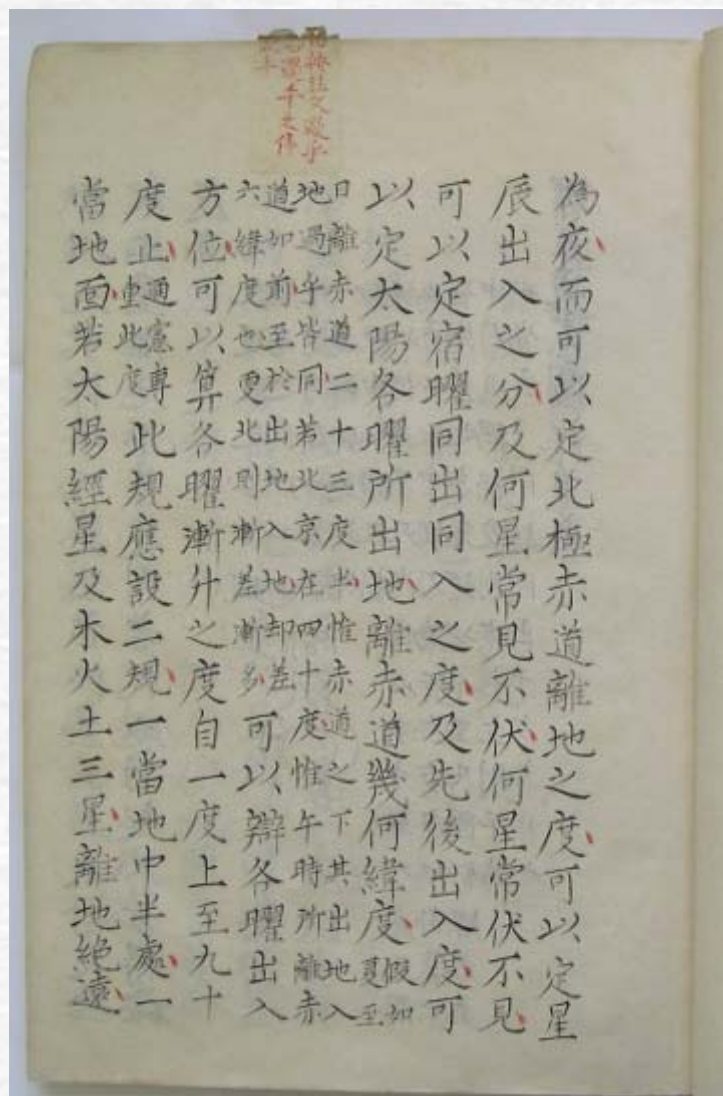 為夜而可以定北極赤道離地之度可以定星
辰出入之分及何星常見不伏何星常伏不見
可以定宿曜同出同入之度及先後出入度可
以定太陽各曜所出地離赤道幾何緯度假如夏至
日離赤道二十三度半惟赤道之下其出地入
地過午皆同若北京在四十度惟午時所離赤
道如前至於出地入地却差
六緯度也更北則漸差漸多可以辯各曜出入
方位可以算各曜漸升之度自一度上至九十
度止通憲專重此度此規應設二規一當地中半處一
當地面若太陽經星及木火土三星離地絕遠